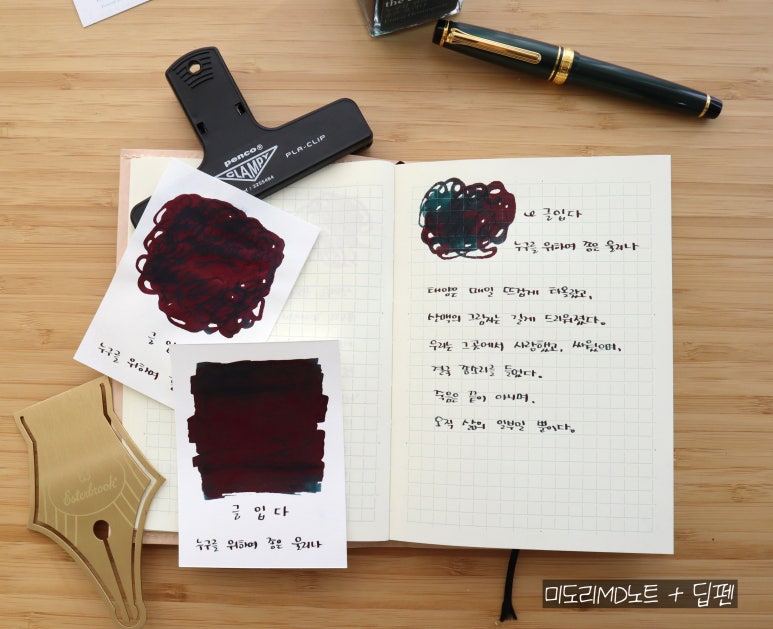 penco®
CLAMPY
PLA-CLIP
글 입
누구를 위하여
Esterbrook
글 입 다
누구를 위하여 종은 울리나
글입다
누구를 위하여 종은 울리나
태양은 매일 뜨겁게 타올랐고,
산맥의 그림자는 길게 드리워졌다.
우리는 그곳에서 사랑했고, 싸웠으며,
결국 종소리를 들었다.
죽음은 끝이 아니며,
오직 삶의 일부일 뿐이다.
미도리MD노트 + 딥펜